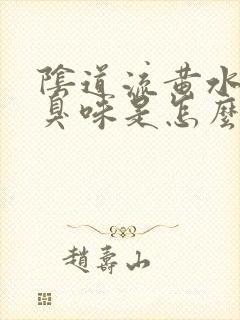 陰道流黃水
臭味是怎麼
趙壽山